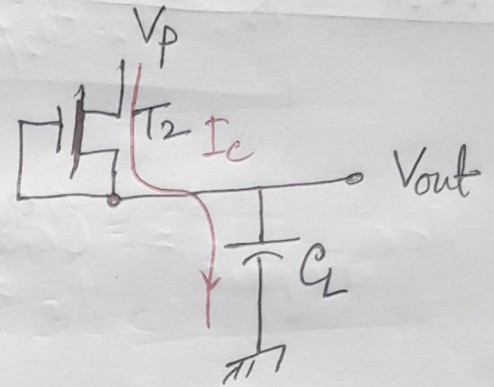 Vp
T2
Ic
Vout
CL